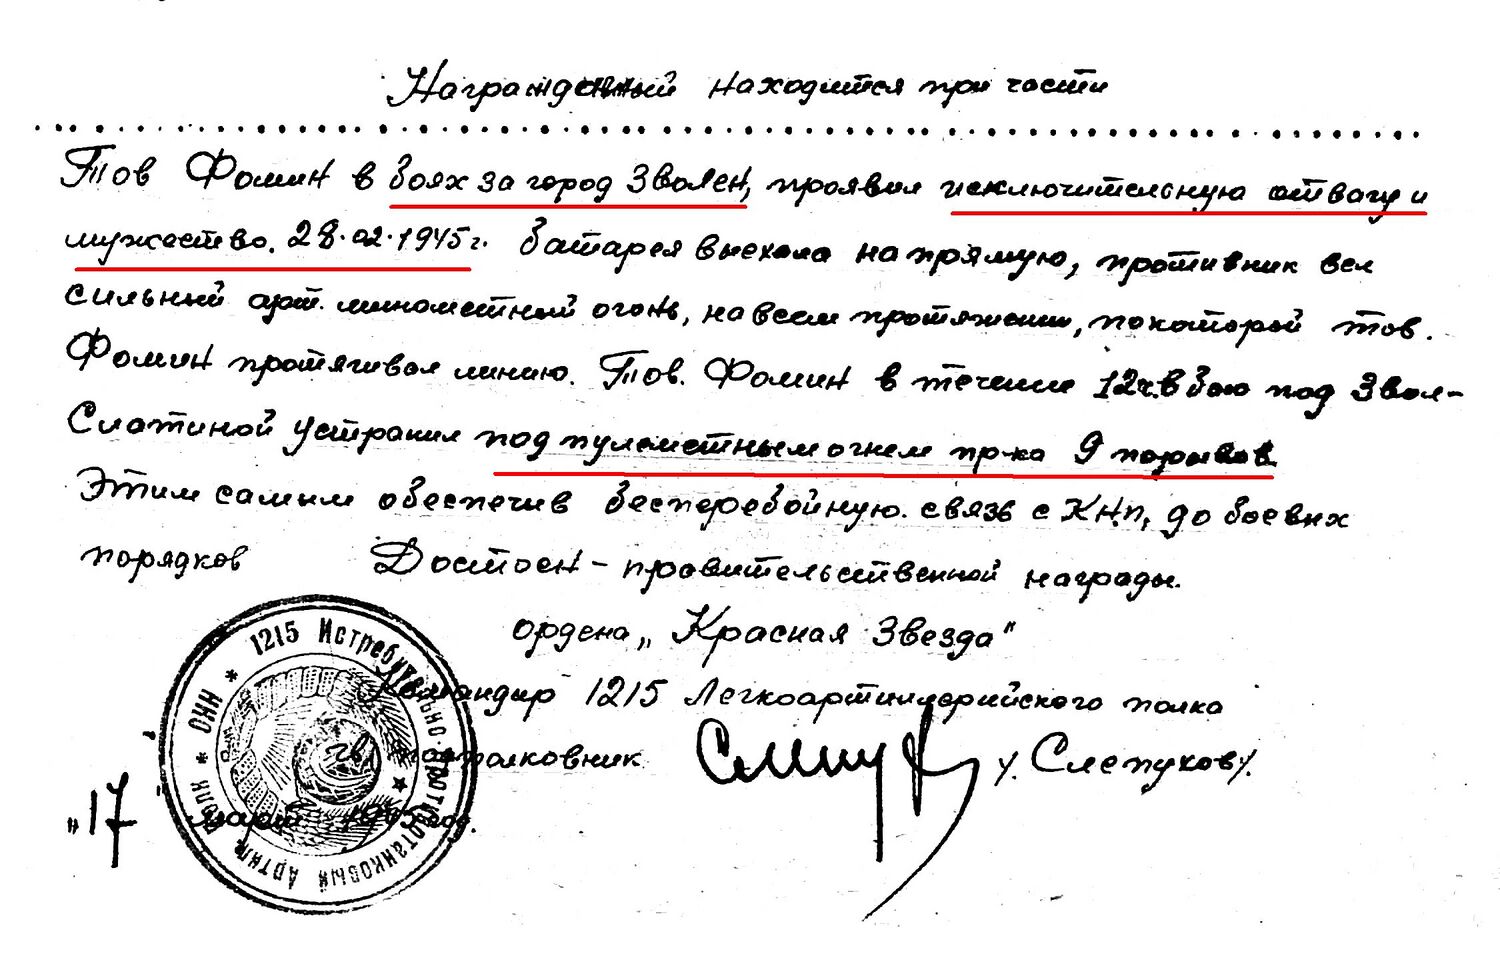 Награжденный находится при части
Тов Фомин в боях за город Зволен, проявил исключительную отвагу и
мужество. 28.02.1945г. батарея выехала на прямую, противник вел
сильный арт. минометный огонь, на всем протяжении, по которой тов.
Фомин протягивал линию. Тов. Фомин в течение 12ч. в бою под Звол-
Слатиной устранил под пулеметным огнем пр-ка 9 порывов
Этим самым обеспечив бесперебойную связь с К.Н.П, до боевых
порядков Достоен - правительственной награды.
ордена „Красная Звезда"
Командир 1215 Легкоартиллерийского полка
гв. подполковник / Слепухов /.
„17 марта 1945 год.
* 1215 Истребительно-Противотанковый Артил. полк * СНН *